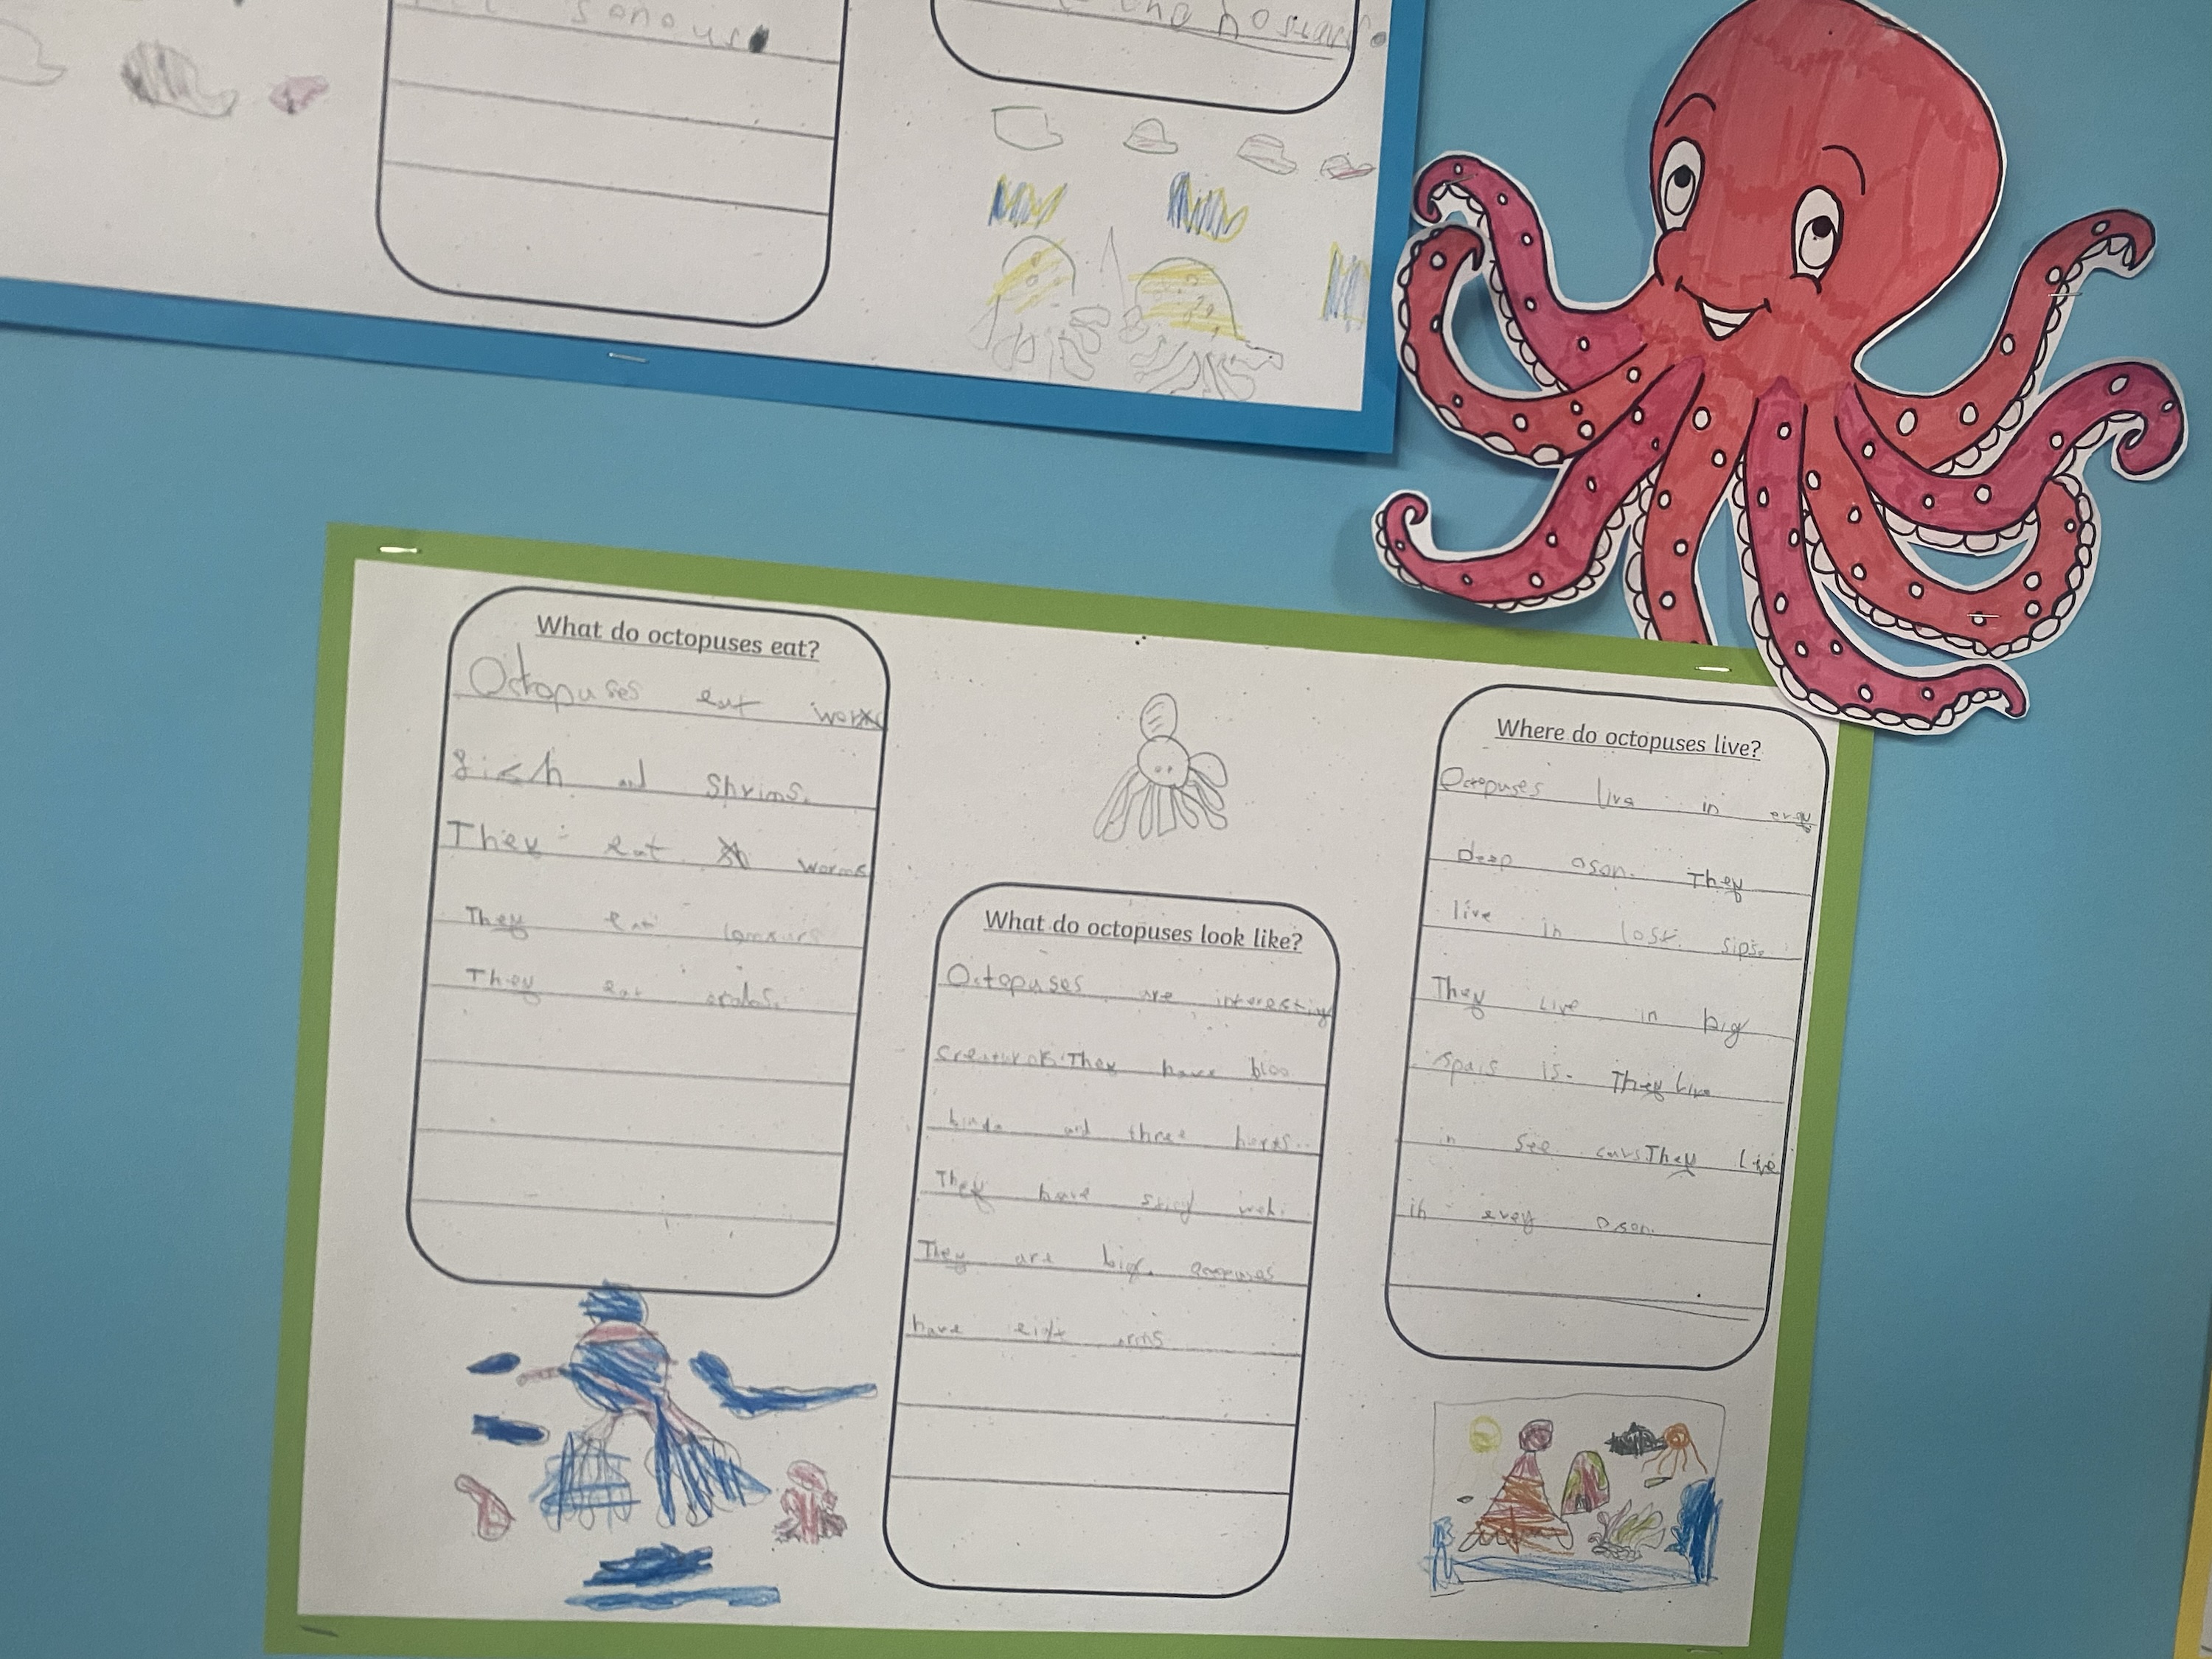 sonous
the
What do octopuses eat?
Octopuses eat
fish and Shrims.
They eat worms
They eat
They eat
What do octopuses look like?
Octopuses are interesting
They have bloo
and three harts.
They have
They are big. octopuses
have eight arms
Where do octopuses live?
Octopuses live in evry
deep oson. They
live in lost sips.
They Live in big
spais is. They Live
in see cavs. They Live
in evey oson.